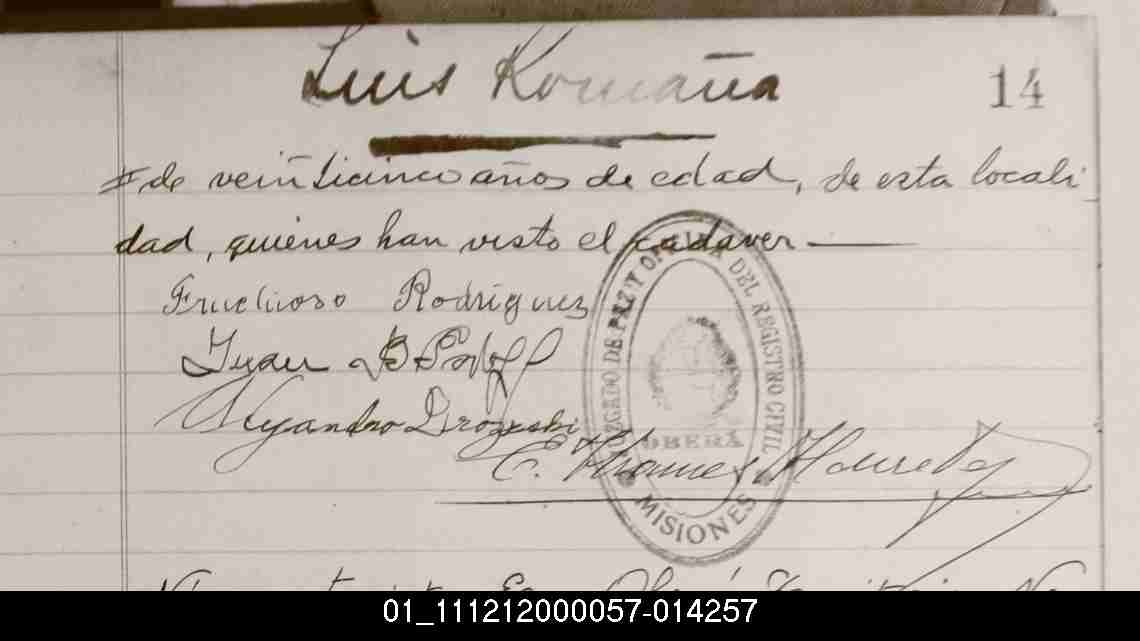 Luis Romaña
14
de veinticinco años de edad, de esta locali
dad, quienes han visto el cadaver
Fructuoso Rodriguez
Juan B
Alejandro
JUZGADO DE PAZ Y OFICINA DEL REGISTRO CIVIL
OBERÁ
MISIONES
01_111212000057-014257